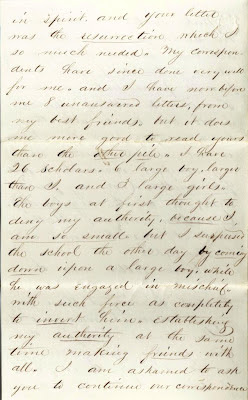 in spirit. and your letter
was the resurrection which I
so much needed. My correspon
dents have since done very well
for me. and I have now before
me 8 unanswered letters, from
my best friends. but it does
me more good to read yours
than the entire pile. I have
26 scholars. 6 large boy. larger
than I. and 5 large girls.
the boys at first thought to
deny my authority. because I
am so small. but I surprised
the school the other day by coming
down upon a large boy. while
he was engaged in mischief
with such force as completely
to invert him. establishing
my authority at the same
time making friends with
all. I am ashamed to ask
you to continue our correspondence